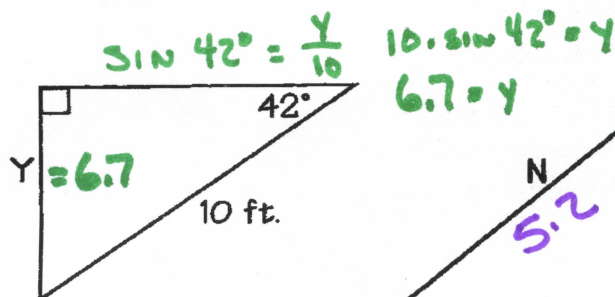 SIN 42° = Y/10
10 · SIN 42° = Y
6.7 = Y
42°
Y = 6.7
10 ft.
N
5.2